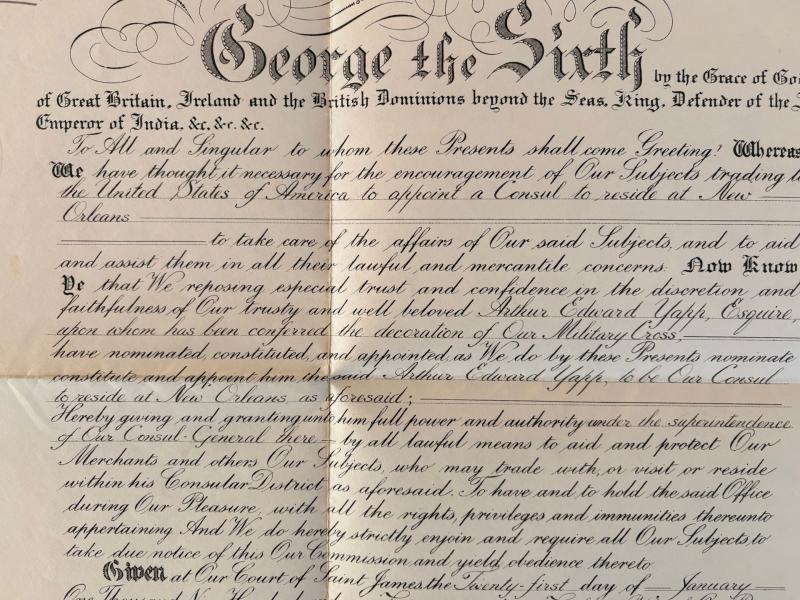 George the Sixth by the Grace of God
of Great Britain, Ireland and the British Dominions beyond the Seas, King, Defender of the
Emperor of India, &c. &c. &c.
To All and Singular to whom these Presents shall come Greeting! Whereas
We, have thought it necessary for the encouragement of Our Subjects trading to
the United States of America to appoint a Consul to reside at New
Orleans
to take care of the affairs of Our said Subjects, and to aid
and assist them in all their lawful and mercantile concerns. Now Know
Ye that We reposing especial trust and confidence in the discretion and
faithfulness of Our trusty and well beloved Arthur Edward Yapp, Esquire,
upon whom has been conferred the decoration of Our Military Cross,
have nominated, constituted, and appointed, as We do by these Presents nominate
constitute and appoint him the said Arthur Edward Yapp, to be Our Consul
to reside at New Orleans, as aforesaid;
Hereby giving and granting unto him full power and authority under the superintendence
of Our Consul-General there by all lawful means to aid and protect Our
Merchants and others Our Subjects, who may trade with, or visit or reside
within his Consular District as aforesaid. To have and to hold the said Office
during Our Pleasure, with all the rights, privileges and immunities thereunto
appertaining And We do hereby strictly enjoin and require all Our Subjects, to
take due notice of this Our Commission and yield obedience thereto
Given at Our Court of Saint James, the Twenty-first day of January
One Thousand Nine Hundred and